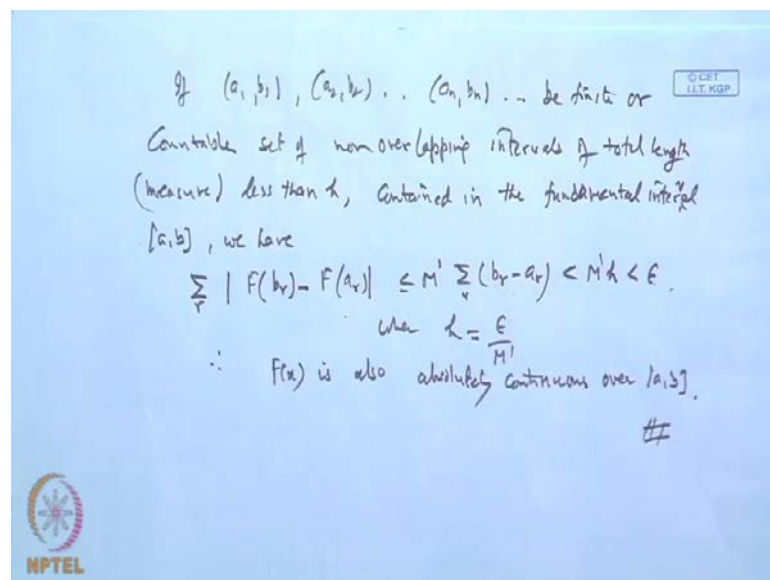 If (a₁, b₁), (a₂, b₂) . . (aₙ, bₙ) .. be finite or
© CET
I.I.T. KGP
Countable set of non overlapping intervals of total length
(measure) less than h, Contained in the fundamental interval
[a,b], we have
∑ᵣ | F(bᵣ) – F(aᵣ)| ≤ M' ∑ᵣ (bᵣ – aᵣ) < M'h < ε.
when h = ε/M'
∴ F(x) is also absolutely continuous over [a,b].
#
NPTEL